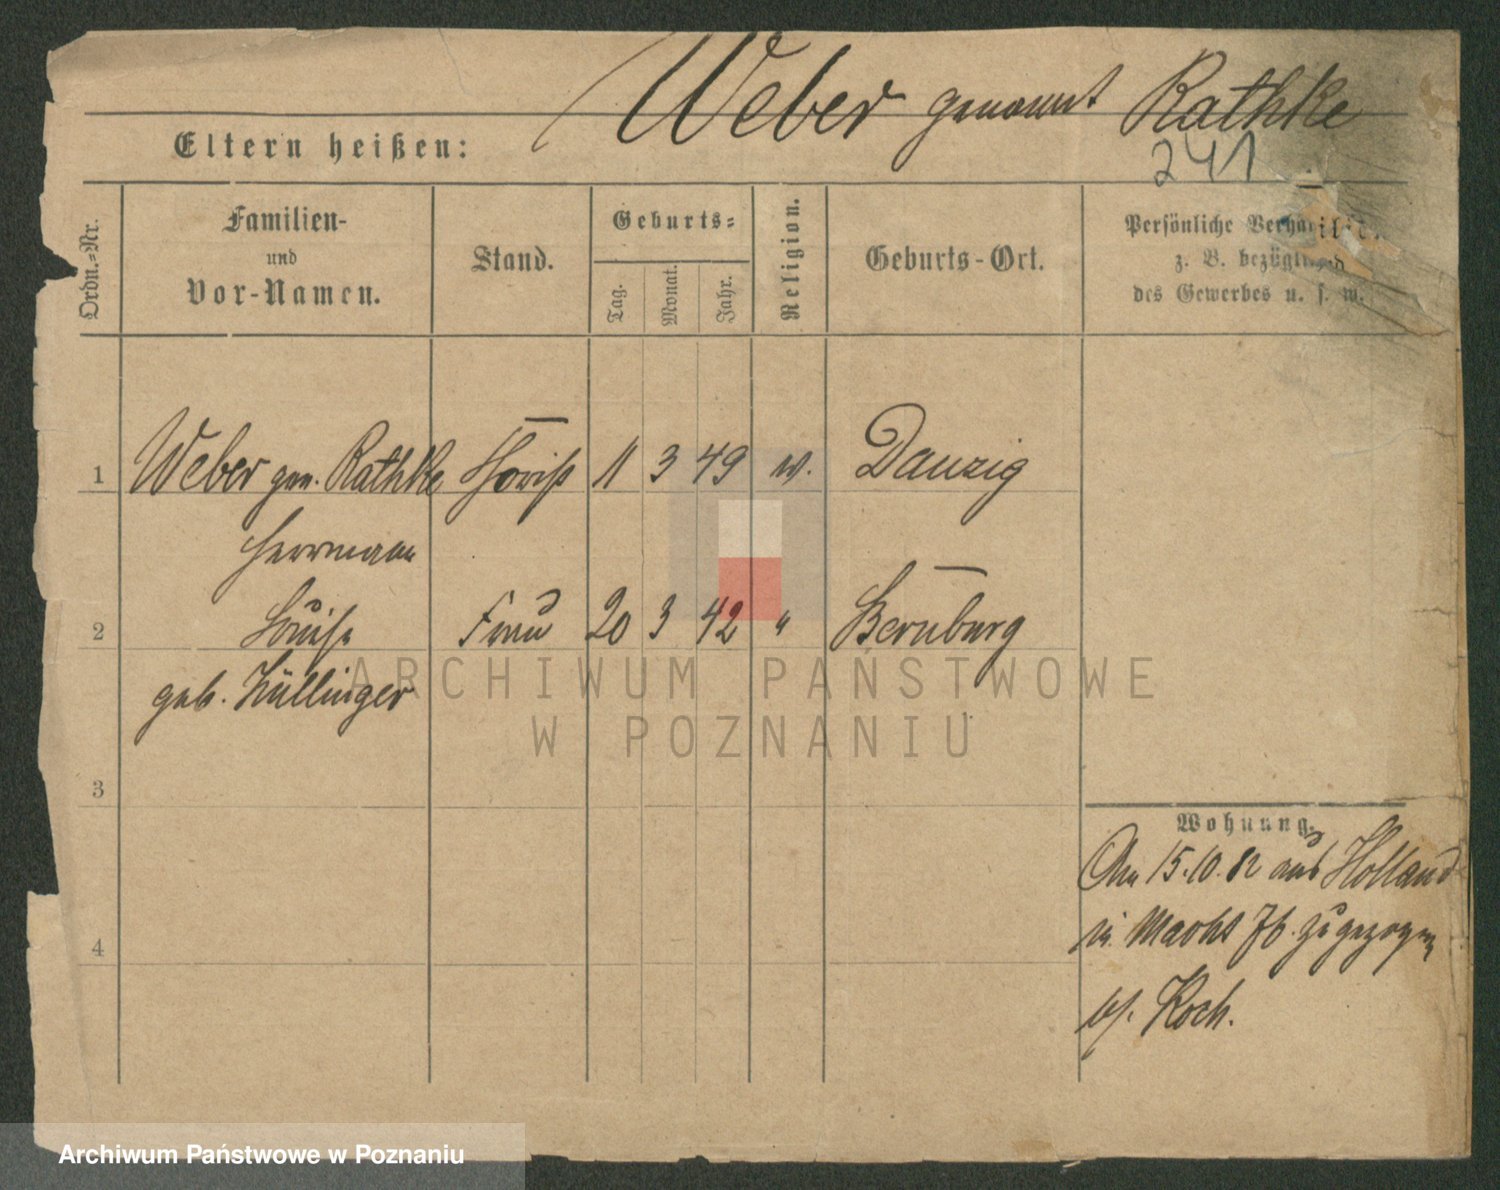 Weber genannt Rathke
241
Eltern heißen:
Ordn.-Nr.
Familien-
und
Vor-Namen.
Stand.
Geburts-
Tag.
Monat.
Jahr.
Religion.
Geburts-Ort.
Persönliche
z. B.
des Gewerbes u. s. w.
1 Weber gen. Rathke 11 3 49 Danzig
Herrmann
2 Louise Frau 20 3 42 " Bernburg
geb. Züllinger
3
4
Wohnung.
Am 15.10.82 aus Holland
in zugezogen
b/. Koch.
ARCHIWUM PAŃSTWOWE
W POZNANIU
Archiwum Państwowe w Poznaniu